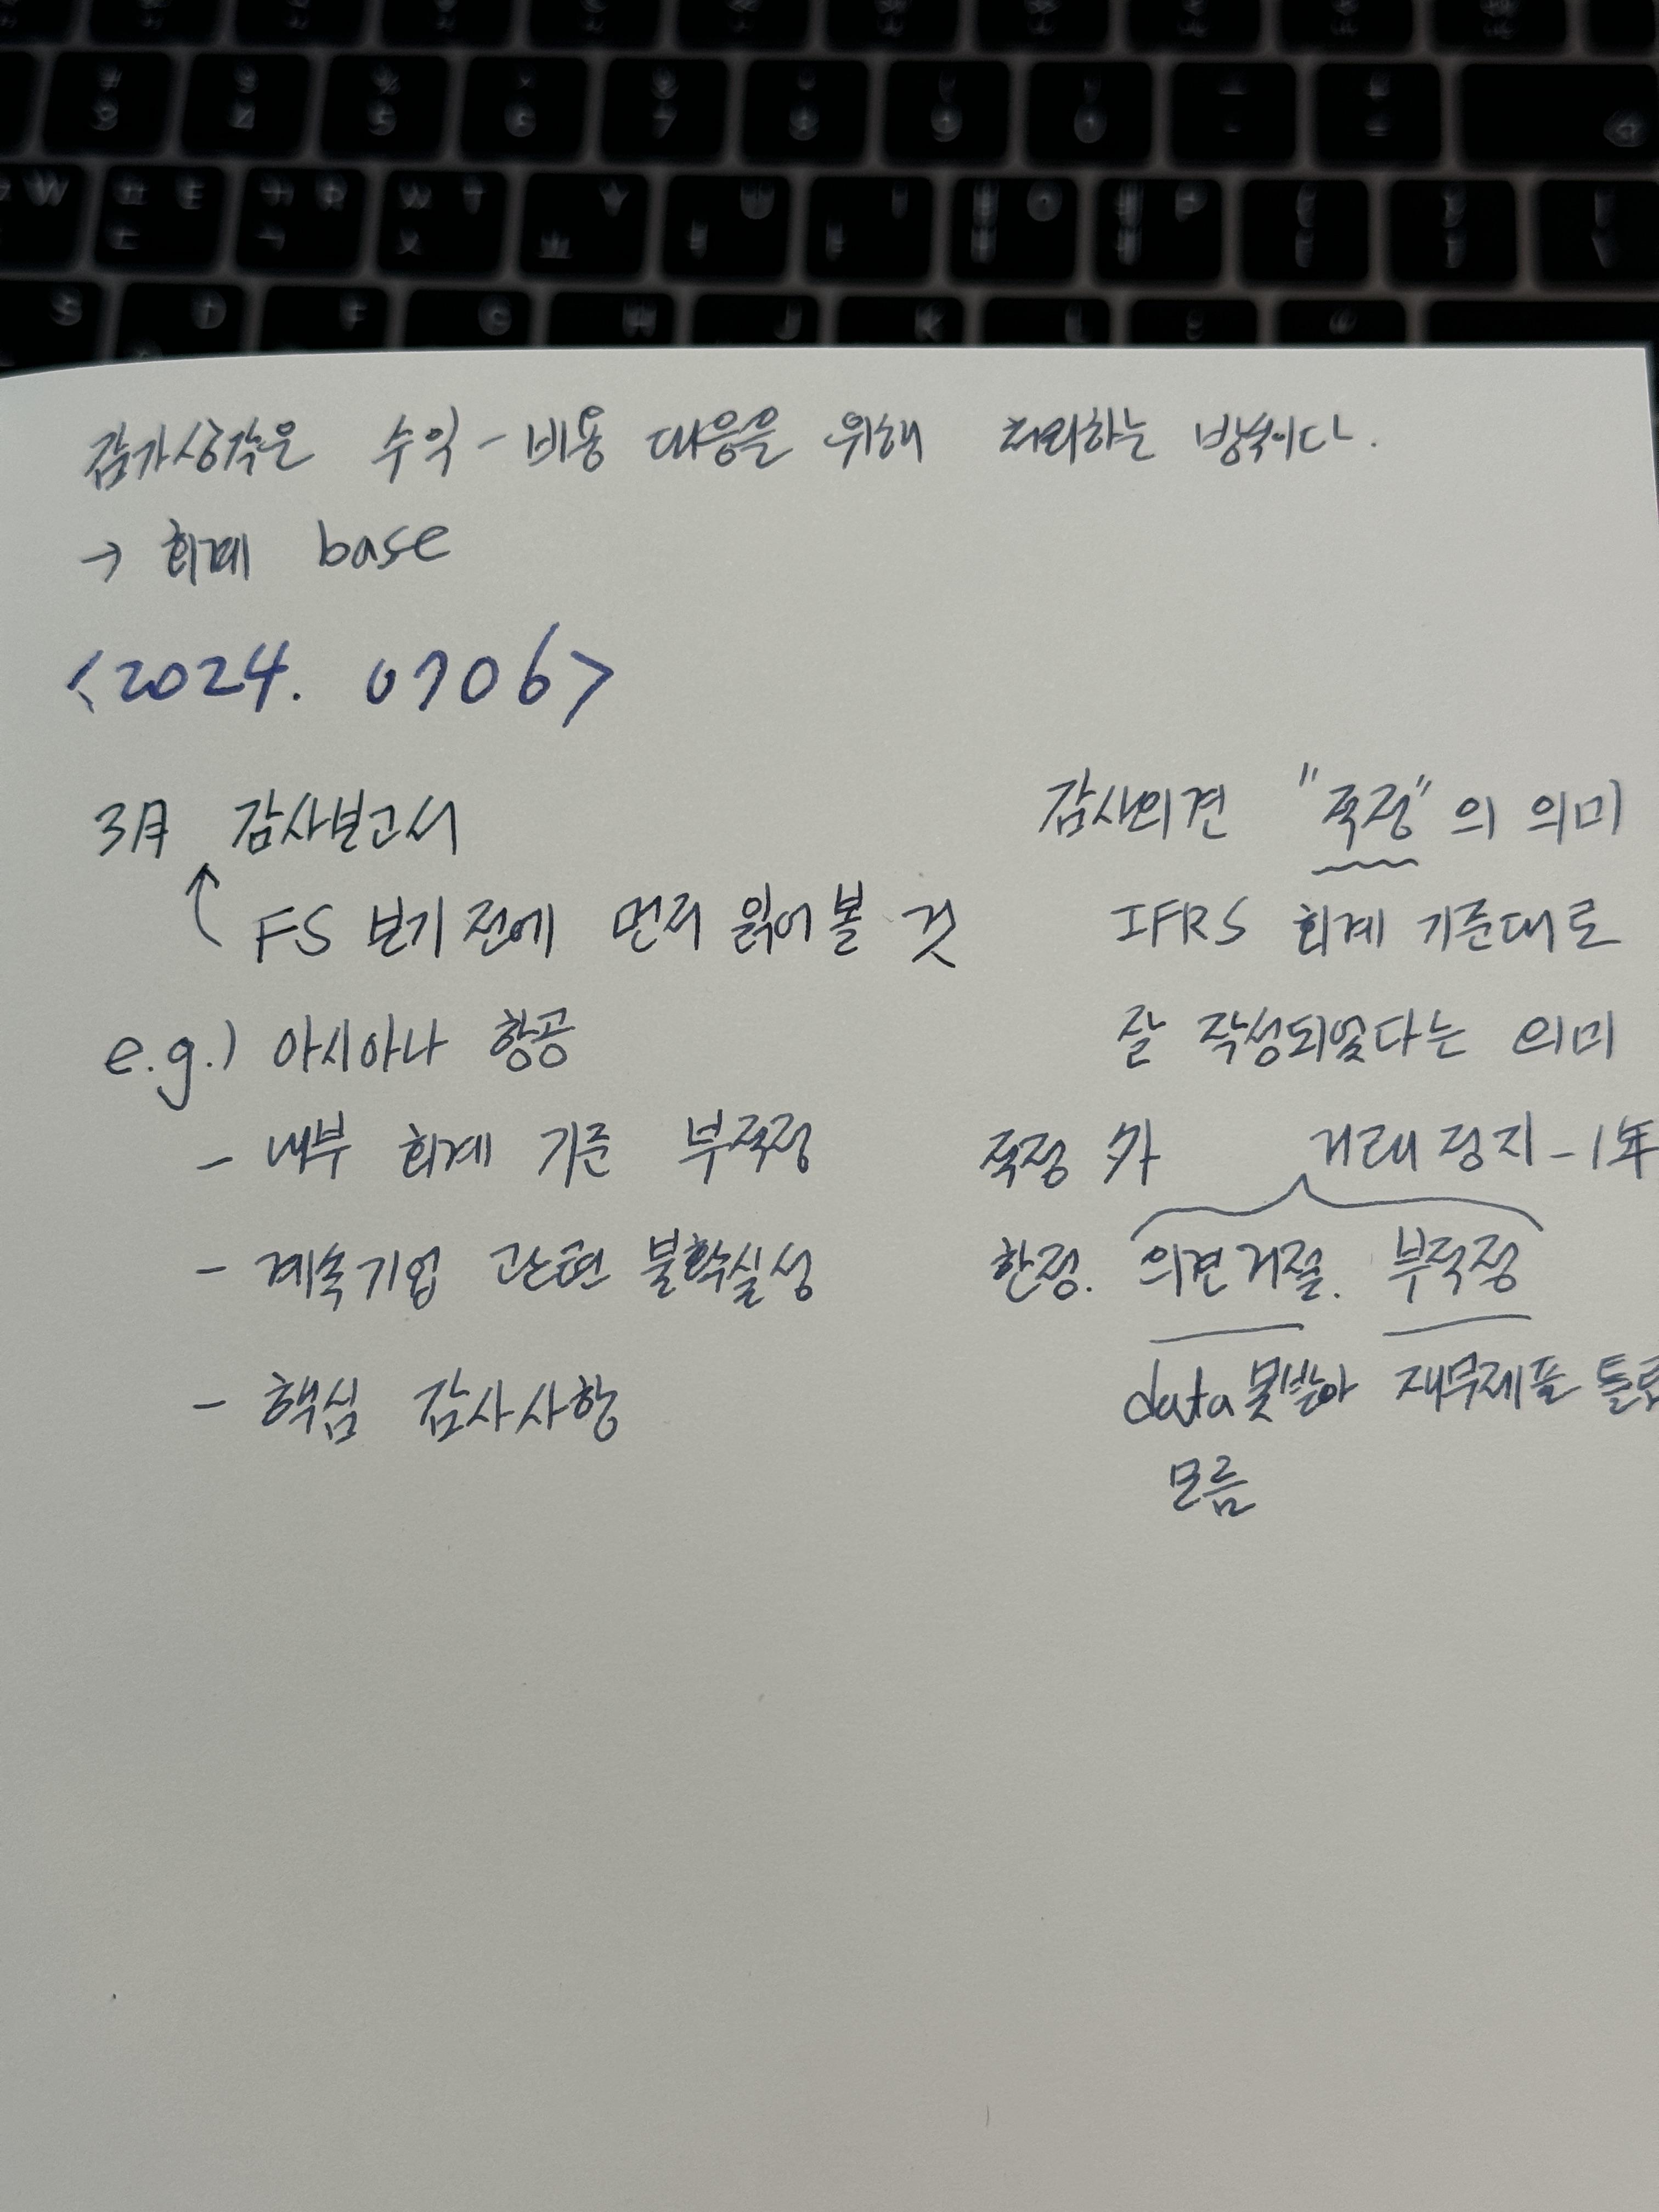 감가상각은 수익-비용 대응을 위해 처리하는 방식이다.
→ 회계 base
<2024. 0706>
3月 감사보고서
FS 보기 전에 먼저 읽어볼 것
e.g.) 아시아나 항공
- 내부 회계 기준 부적정
- 계속기업 관련 불확실성
- 핵심 감사사항
감사의견 "적정"의 의미
IFRS 회계 기준대로
잘 작성되었다는 의미
적정 外 거래정지-1年
한정. 의견거절. 부적정
data 못받아 재무제표
모름